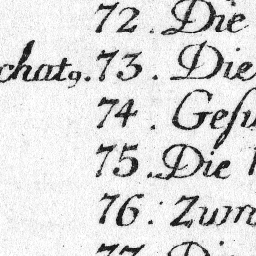 72. Die
chat9. 73. Die
74. Gesu
75. Die
76. Zum
77. Die